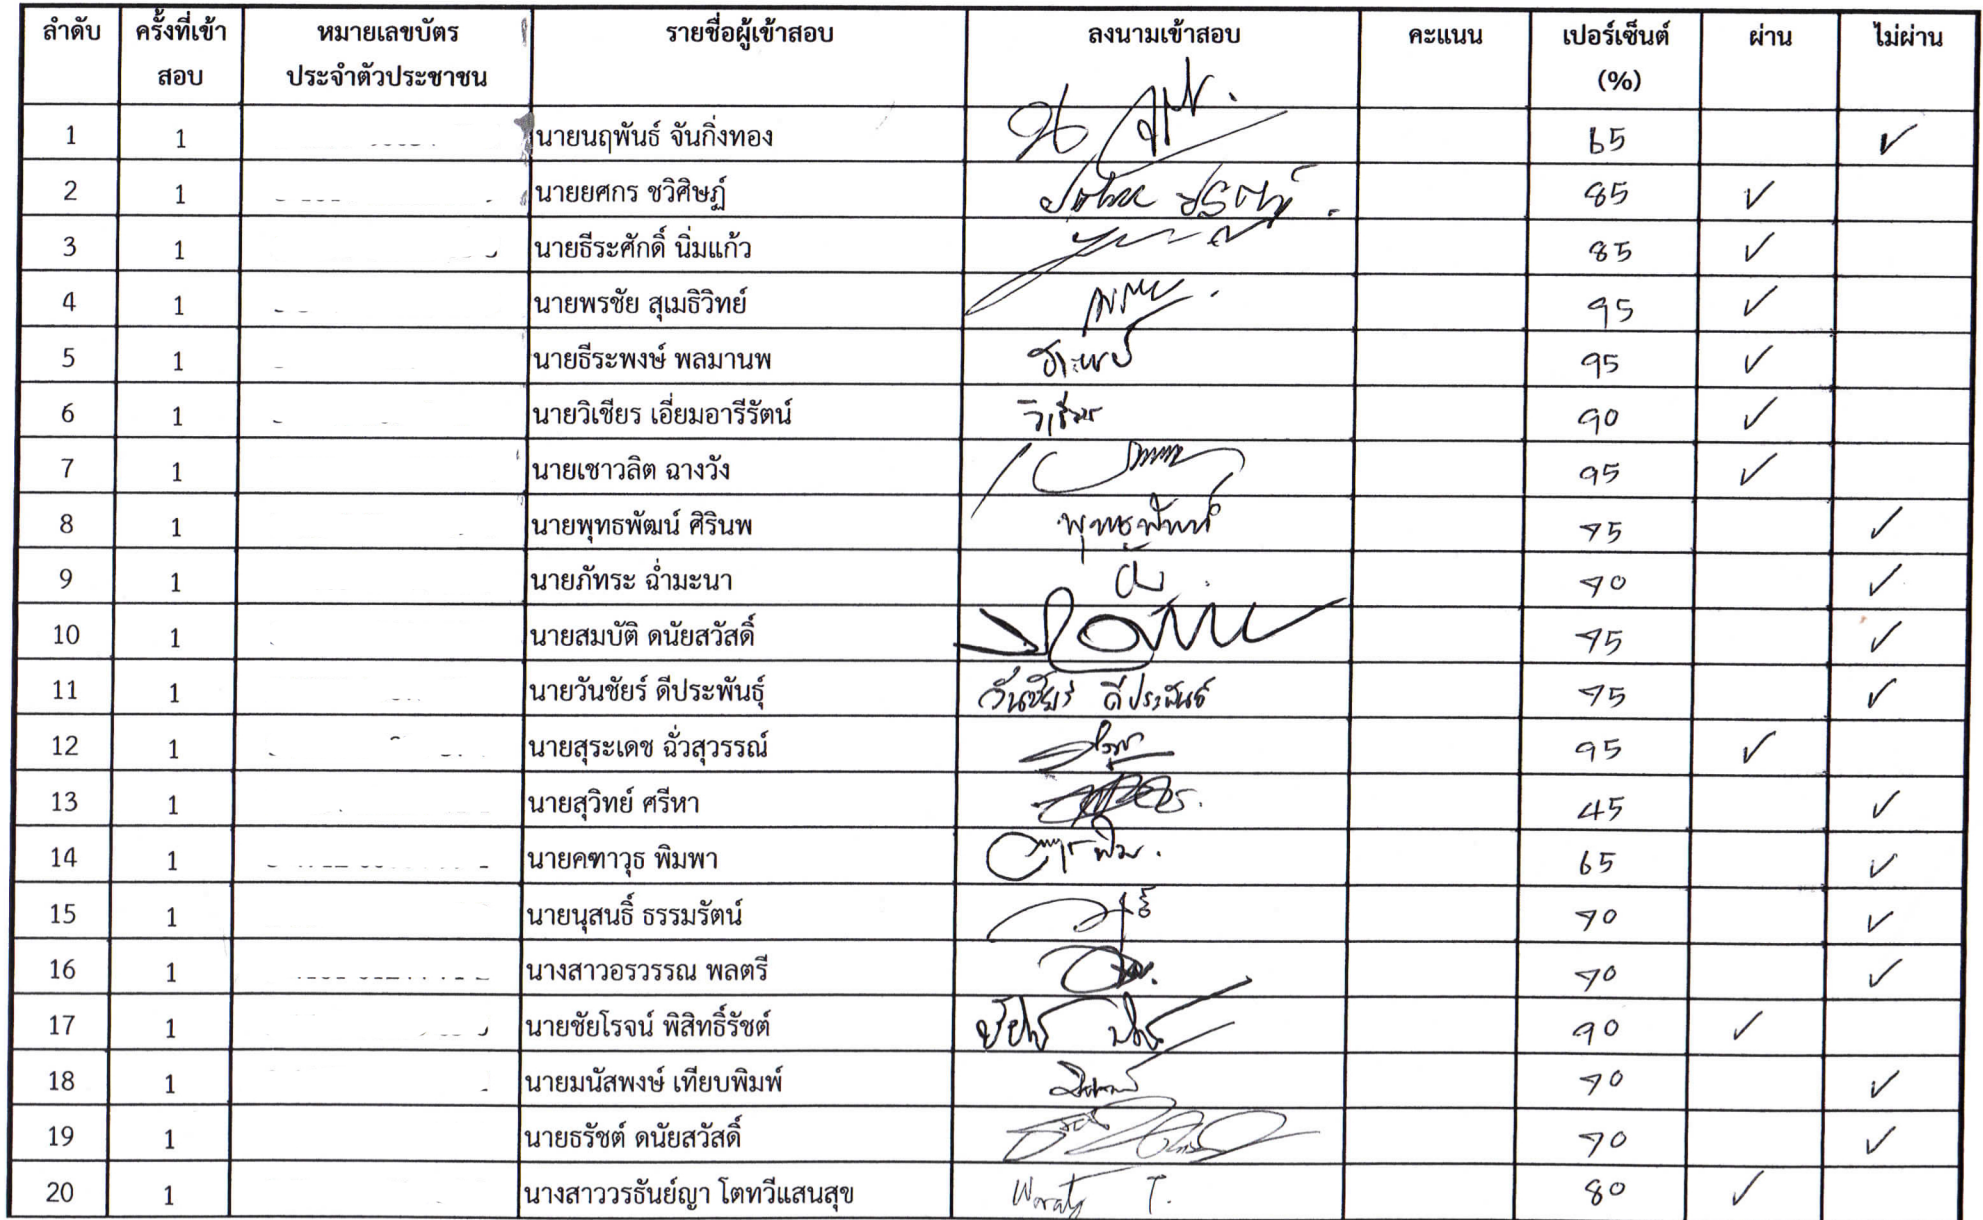 ลำดับ ครั้งที่เข้า หมายเลขบัตร รายชื่อผู้เข้าสอบ ลงนามเข้าสอบ คะแนน เปอร์เซ็นต์ ผ่าน ไม่ผ่าน
สอบ ประจำตัวประชาชน (%)
1 1 นายนฤพันธ์ จันกิ่งทอง 65 ✓
2 1 นายยศกร ชวิศิษฏ์ 85 ✓
3 1 นายธีระศักดิ์ นิ่มแก้ว 85 ✓
4 1 นายพรชัย สุเมธิวิทย์ 95 ✓
5 1 นายธีระพงษ์ พลมานพ 95 ✓
6 1 นายวิเชียร เอี่ยมอารีรัตน์ วิเชียร 90 ✓
7 1 นายเชาวลิต ฉางวัง 95 ✓
8 1 นายพุทธพัฒน์ ศิรินพ 75 ✓
9 1 นายภัทระ ฉ่ำมะนา 70 ✓
10 1 นายสมบัติ ดนัยสวัสดิ์ 75 ✓
11 1 นายวันชัยร์ ดีประพันธุ์ วันชัยร์ ดีประพันธ์ 75 ✓
12 1 นายสุระเดช ฉั่วสุวรรณ์ 95 ✓
13 1 นายสุวิทย์ ศรีหา 45 ✓
14 1 นายคฑาวุธ พิมพา 65 ✓
15 1 นายนุสนธิ์ ธรรมรัตน์ 70 ✓
16 1 นางสาวอรวรรณ พลตรี 70 ✓
17 1 นายชัยโรจน์ พิสิทธิ์รัชต์ 90 ✓
18 1 นายมนัสพงษ์ เทียบพิมพ์ 70 ✓
19 1 นายธรัชต์ ดนัยสวัสดิ์ 70 ✓
20 1 นางสาววรธันย์ญา โตทวีแสนสุข T. 80 ✓